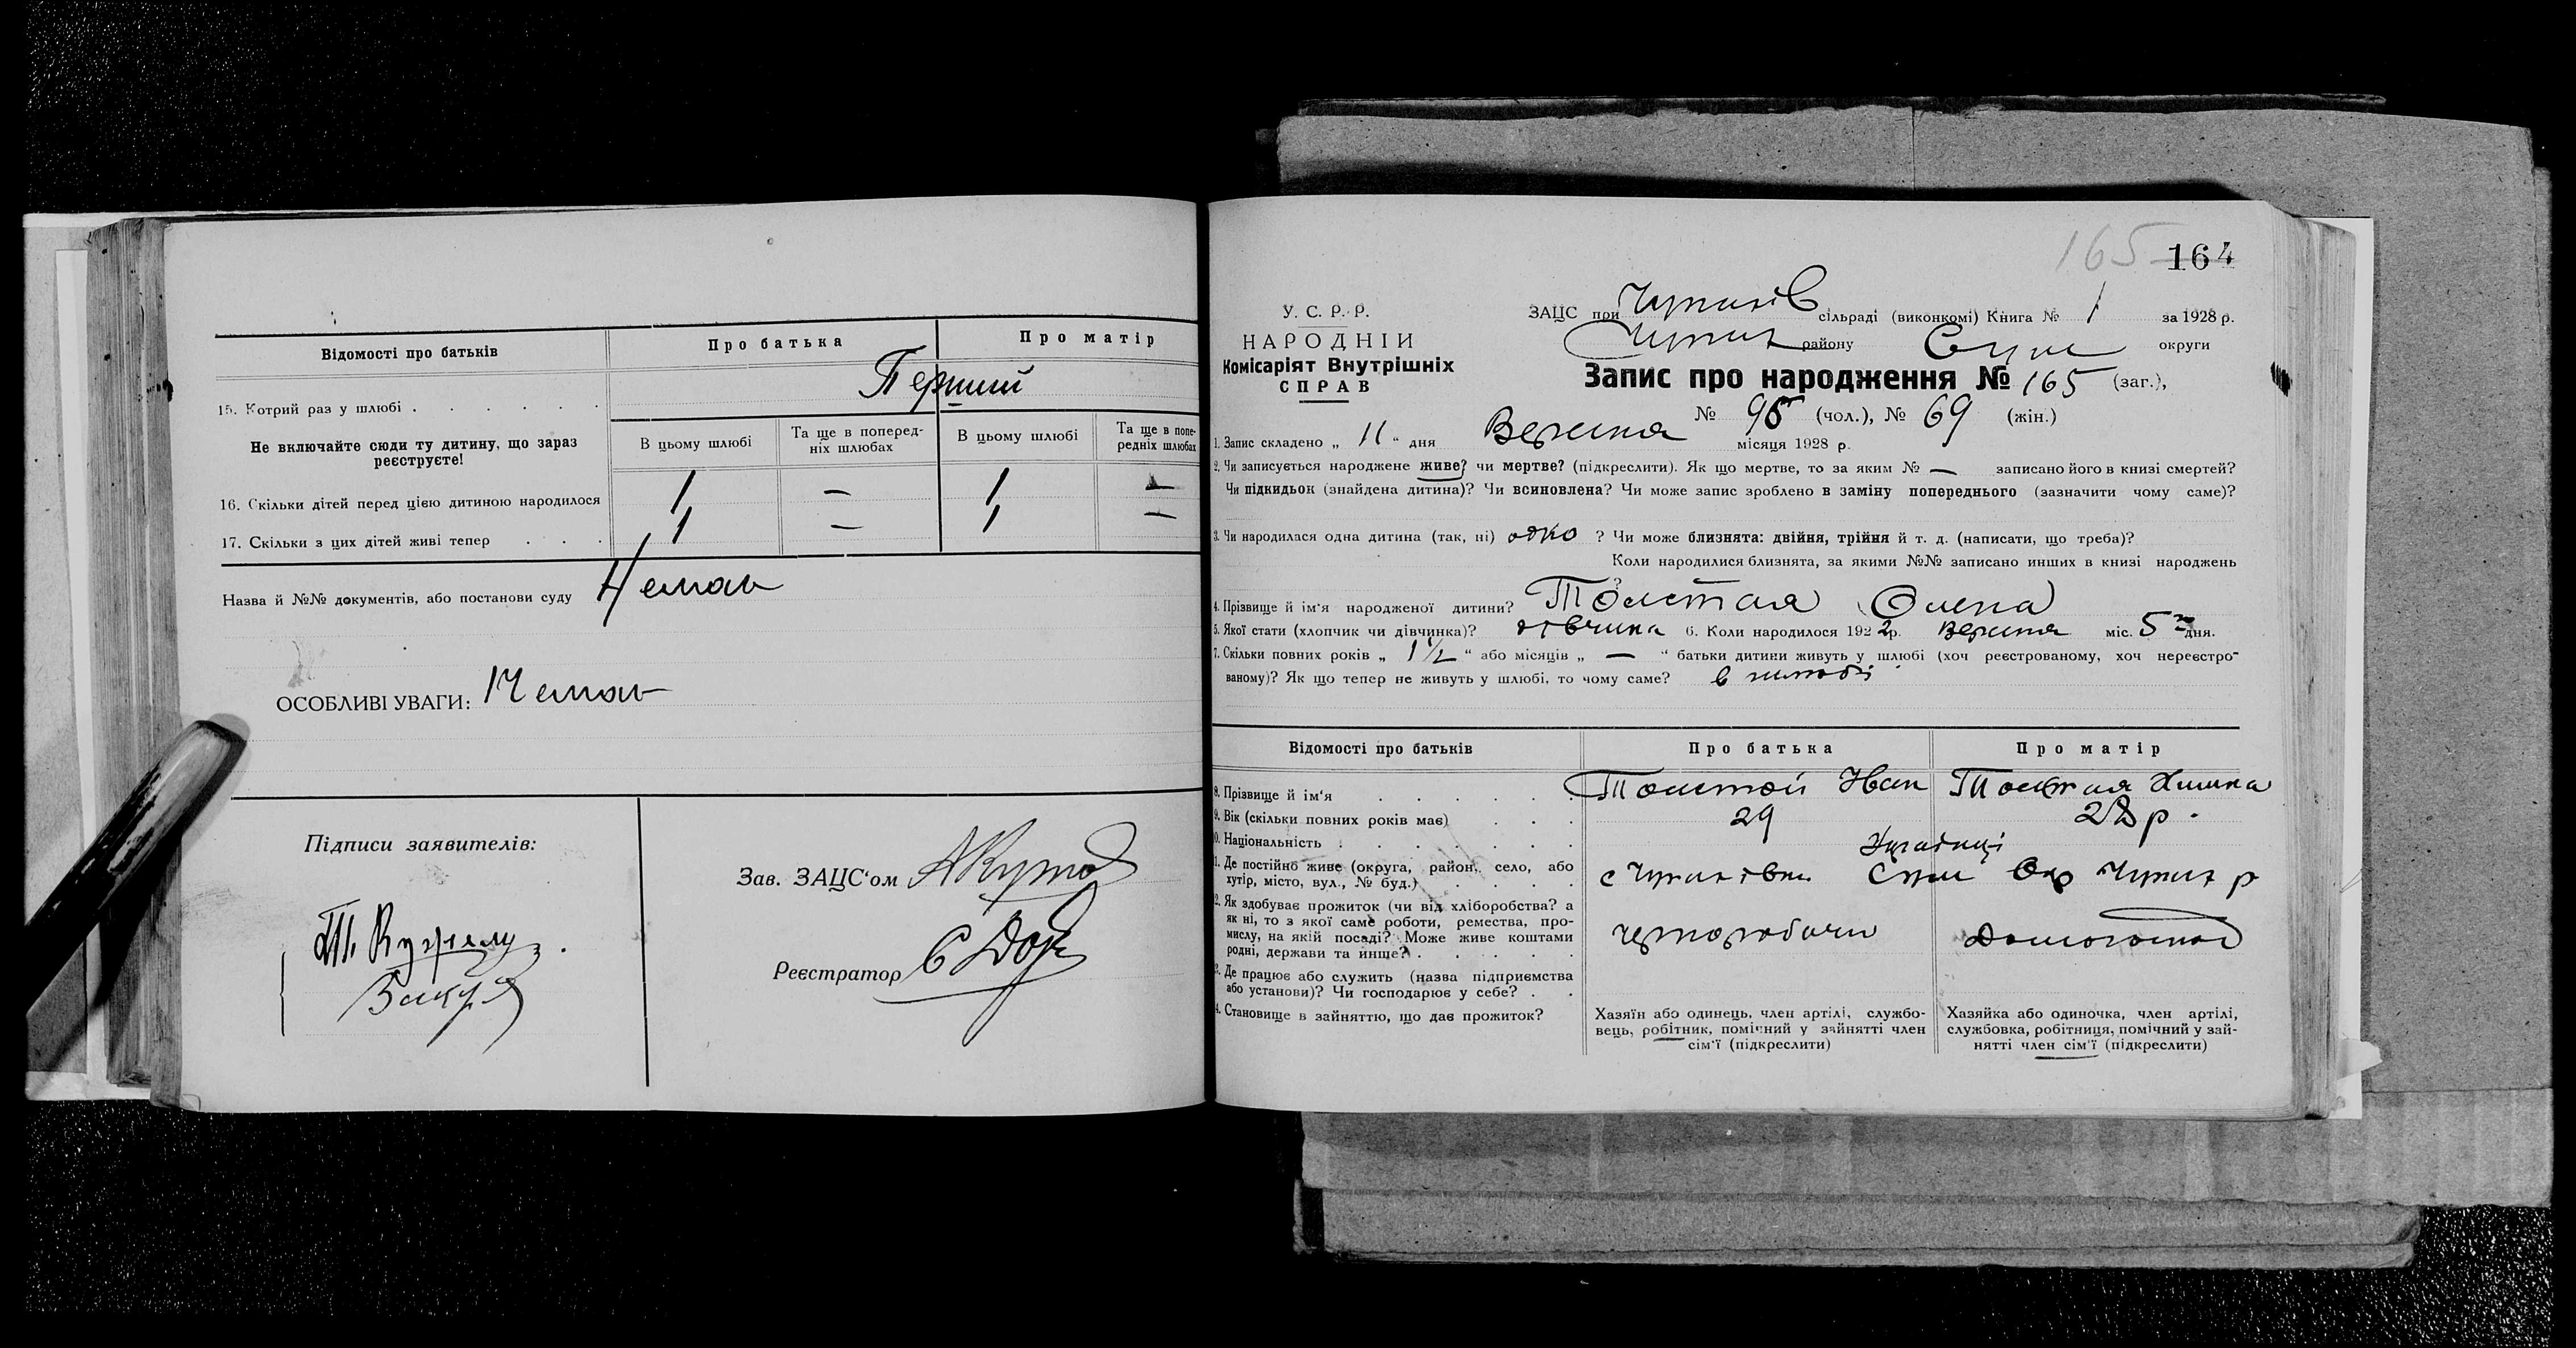 Відомості про батьків
Про батька
Про матір
15. Котрий раз у шлюбі
Перший
Не включайте сюди ту дитину, що зараз реєструєте!
В цьому шлюбі
Та ще в попередніх шлюбах
В цьому шлюбі
Та ще в попередніх шлюбах
16. Скільки дітей перед цією дитиною народилося
1 — 1 —
17. Скільки з цих дітей живі тепер
1 — 1 —
Назва й №№ документів, або постанови суду Немає
ОСОБЛИВІ УВАГИ: Немає
Підписи заявителів:
Зав. ЗАЦС'ом
Реєстратор
165 164
У. С. Р. Р.
НАРОДНІЙ
Комісаріят Внутрішніх
СПРАВ
ЗАЦС при Чупахів сільраді (виконкомі) Книга № 1 за 1928 р.
Чупах району Сум округи
Запис про народження № 165 (заг.),
№ 96 (чол.), № 69 (жін.)
1. Запис складено „ 11 “ дня Вересня місяця 1928 р.
2. Чи записується народжене живе? чи мертве? (підкреслити). Як що мертве, то за яким № — записано його в книзі смертей?
Чи підкидьок (знайдена дитина)? Чи всиновлена? Чи може запис зроблено в заміну попереднього (зазначити чому саме)?
3. Чи народилася одна дитина (так, ні) одно ? Чи може близнята: двійня, трійня й т. д. (написати, що треба)?
Коли народилися близнята, за якими №№ записано инших в книзі народжень
?
4. Прізвище й ім'я народженої дитини? Толстая Олена
5. Якої стати (хлопчик чи дівчинка)? дівчина 6. Коли народилося 192 р. Вересня міс. 5 дня.
7. Скільки повних років „ 1½ “ або місяців „ — “ батьки дитини живуть у шлюбі (хоч реєстрованому, хоч нереєстро-
ваному)? Як що тепер не живуть у шлюбі, то чому саме? в шлюбі
Відомості про батьків
Про батька
Про матір
8. Прізвище й ім'я
Толстой Іван
Толстая
9. Вік (скільки повних років має)
29
28 р.
0. Національність
1. Де постійно живе (округа, район, село, або
хутір, місто, вул., № буд.)
с Чупахівка Сум Окр Чупах р
2. Як здобуває прожиток (чи від хліборобства? а
як ні, то з якої саме роботи, ремества, про-
мислу, на якій посаді? Може живе коштами
родні, держави та инше?
чорноробочи
3. Де працює або служить (назва підприємства
або установи)? Чи господарює у себе?
4. Становище в зайняттю, що дає прожиток?
Хазяїн або одинець, член артілі, службо-
вець, робітник, помічний у зайнятті член
сім'ї (підкреслити)
Хазяйка або одиночка, член артілі,
службовка, робітниця, помічний у зай-
нятті член сім'ї (підкреслити)